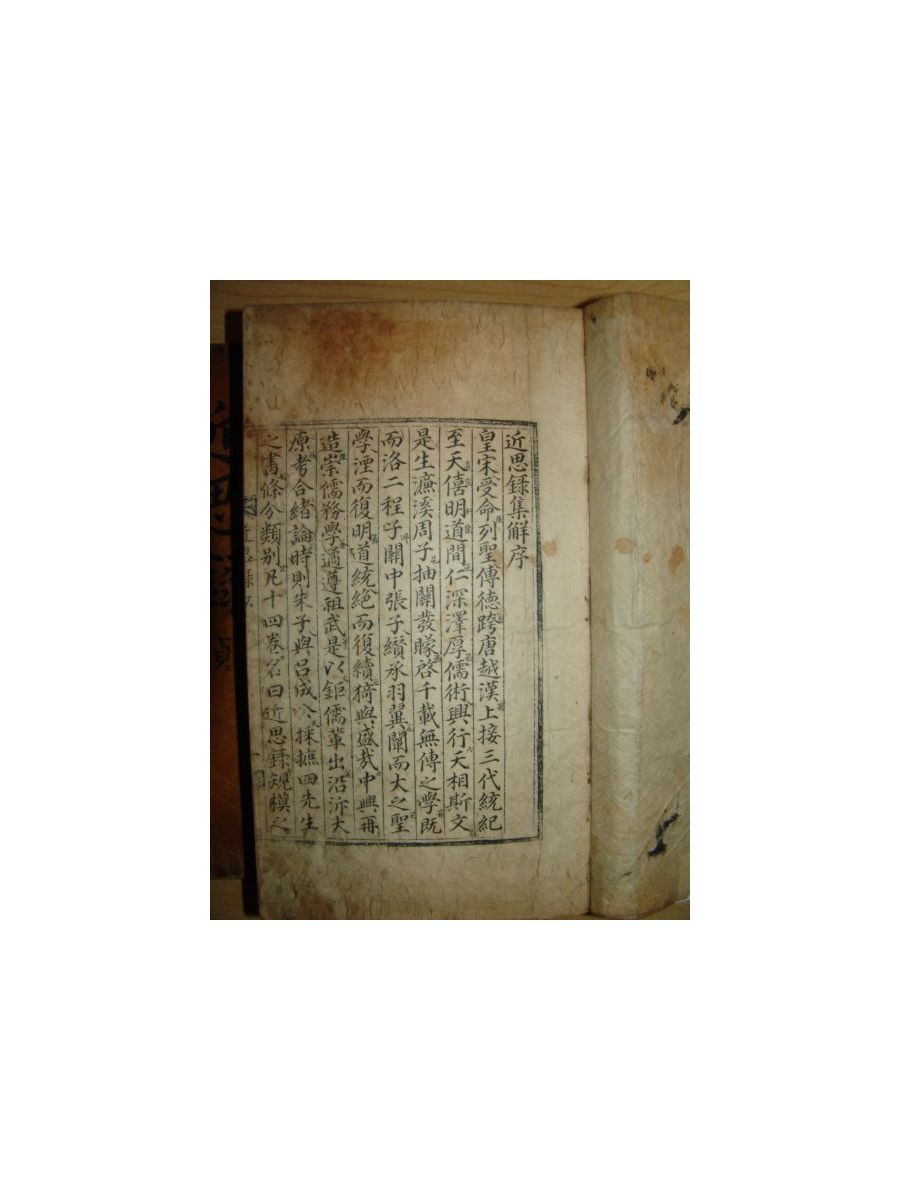 近思録集解序
皇宋受命列聖傳德跨唐越漢上接三代統紀
至天僖明道間仁深澤厚儒術興行天相斯文
是生濂溪周子抽關發矇啓千載無傳之學既
而洛二程子關中張子纘承羽翼闡而大之聖
學湮而復明道統絶而復續猗與盛㢤中興再
造崇儒務學遹遵祖武是以鉅儒輩出沿泝大
原考合緒論時則朱子與呂成公採摭四先生
之書條分類别凡十四卷名曰近思録規模之
近思録